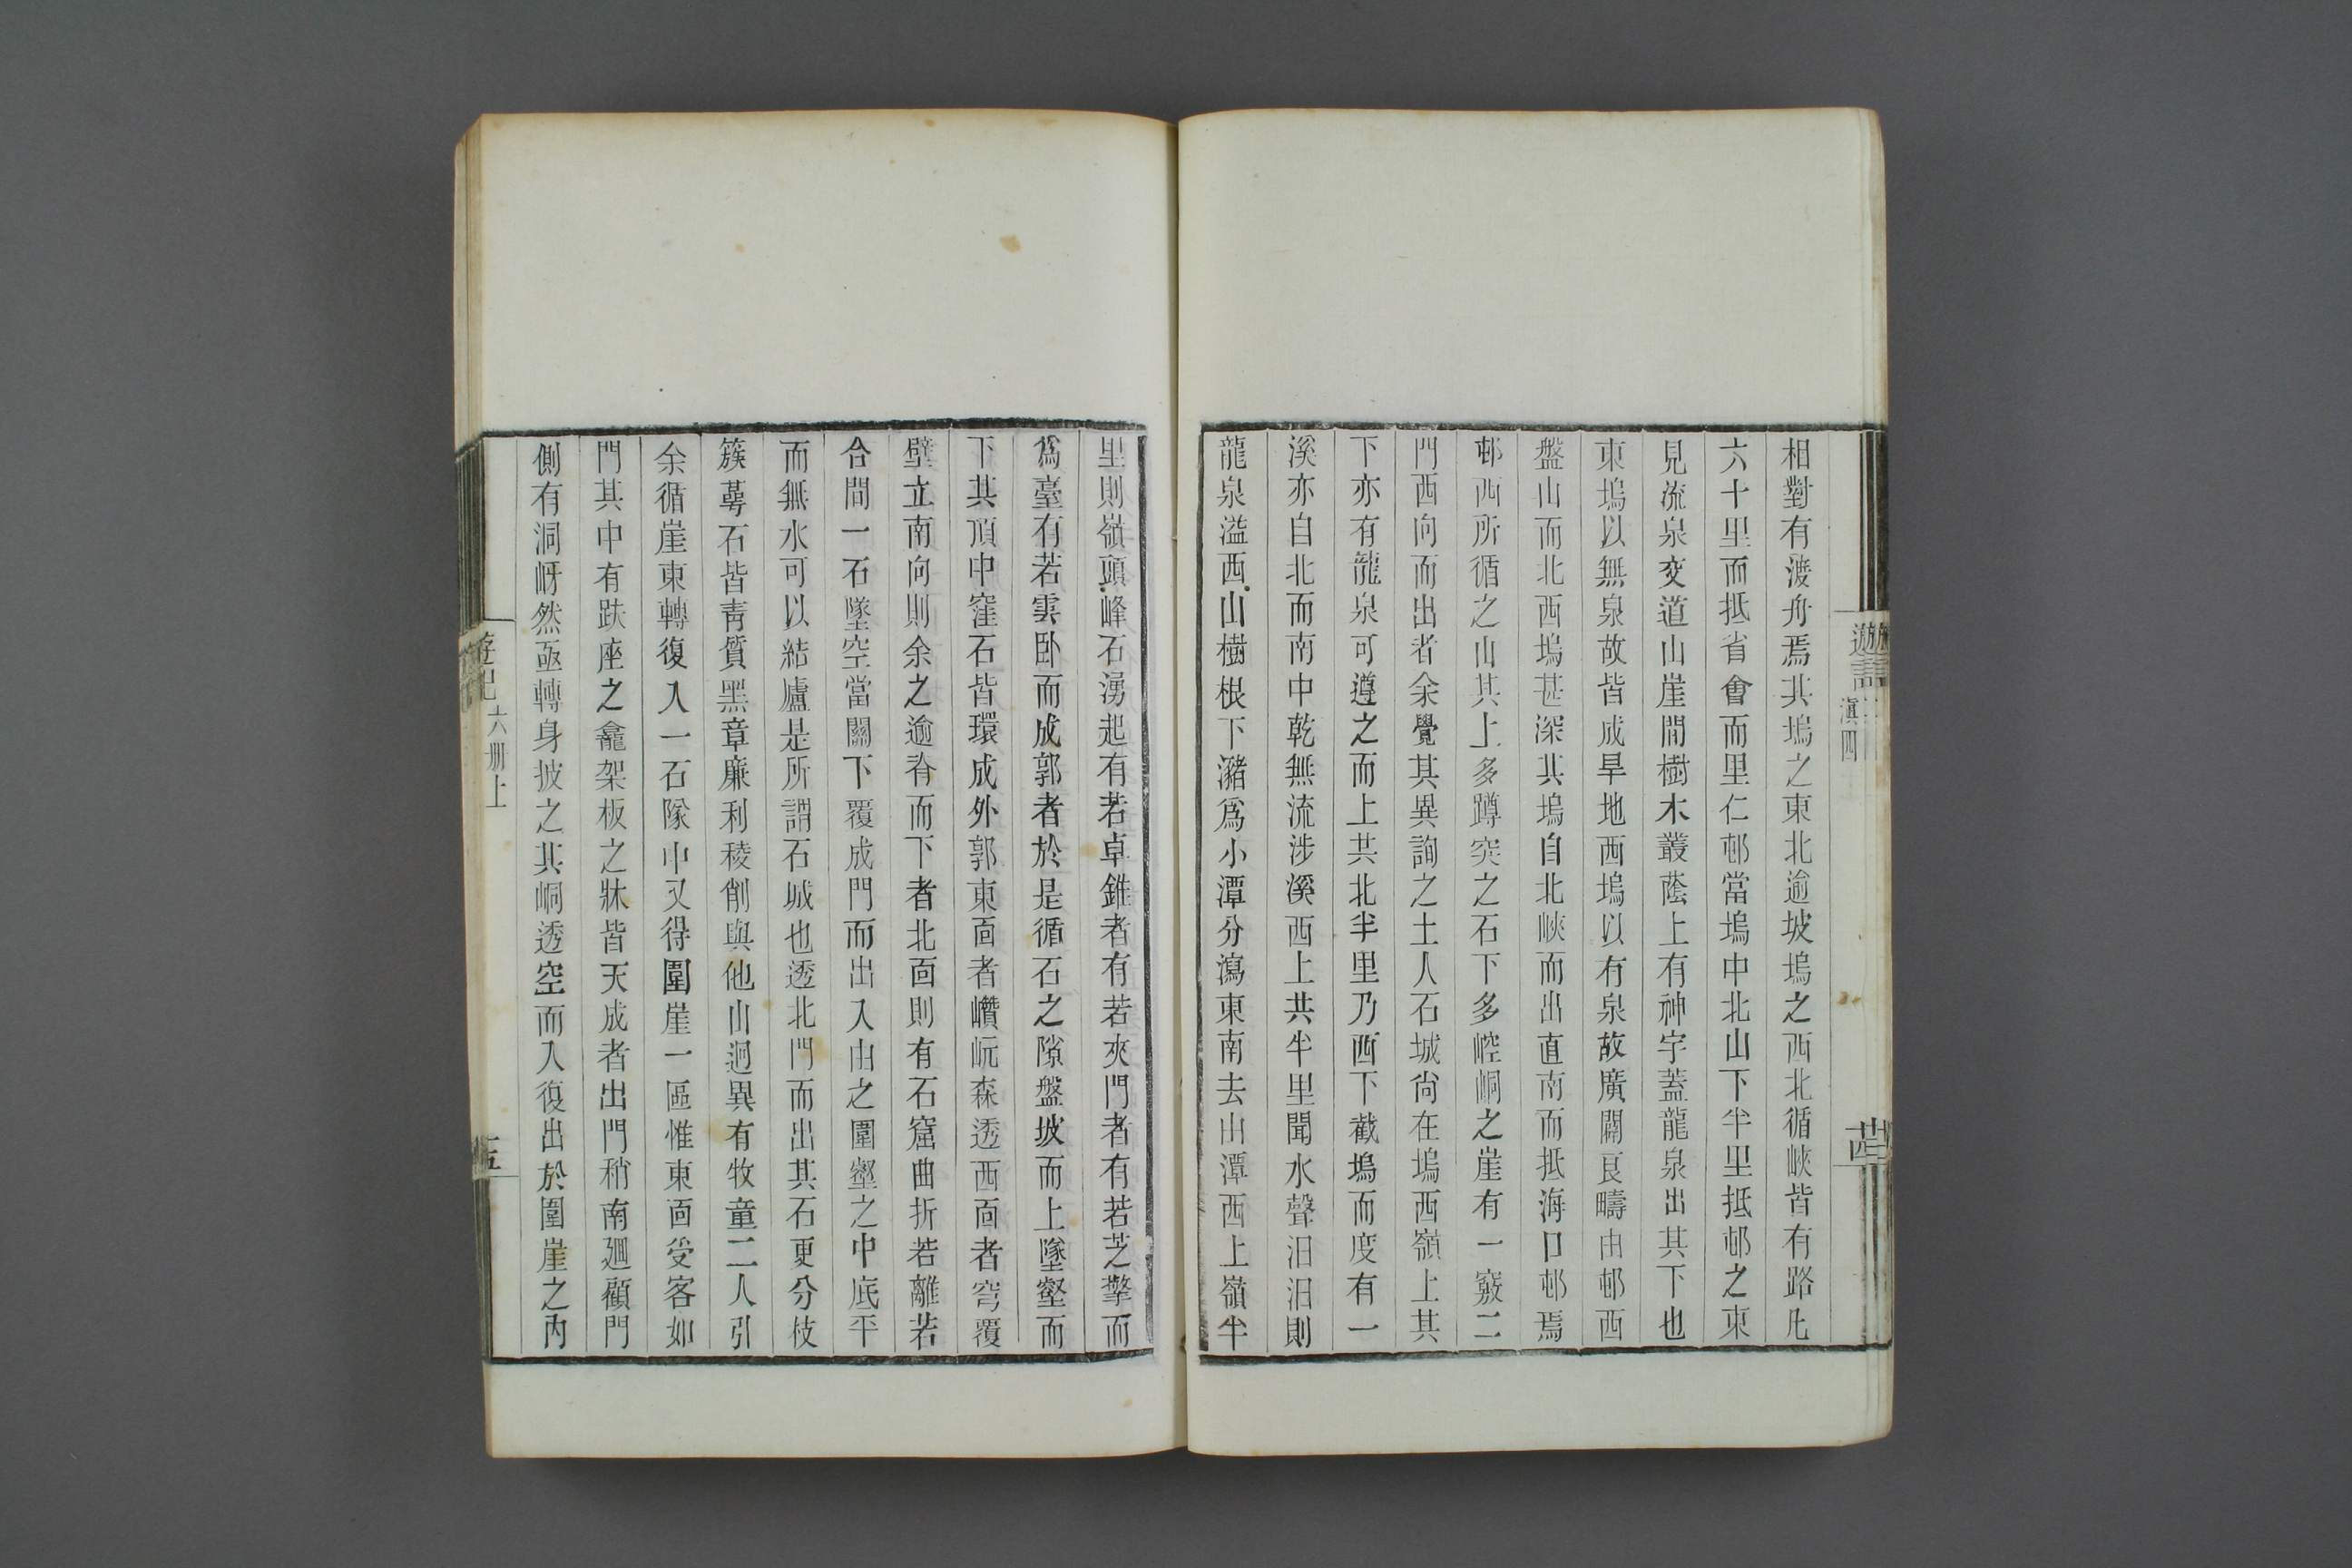 相對有渡舟焉其塢之東北逾坡塢之西北循峽皆有路凡
六十里而抵省會而里仁邨當塢中北山下半里抵邨之東
見流泉交道山崖間樹木叢蔭上有神宇蓋龍泉出其下也
東塢以無泉故皆成旱地西塢以有泉故廣闢良疇由邨西
盤山而北西塢甚深其塢自北峽而出直南而抵海口邨焉
邨西所循之山其上多蹲突之石下多崆峒之崖有一竅二
門西向而出者余覺其異詢之土人石城尙在塢西嶺上其
下亦有龍泉可遵之而上共北半里乃西下截塢而度有一
溪亦自北而南中乾無流涉溪西上共半里聞水聲汨汨則
龍泉溢西山樹根下瀦爲小潭分瀉東南去山潭西上嶺半
里則嶺頭峰石湧起有若卓錐者有若夾門者有若芝擎而
爲臺有若雲臥而成郭者於是循石之隙盤坡而上墜壑而
下其頂中窪石皆環成外郭東面者巑岏森透西面者穹覆
壁立南向則余之逾脊而下者北面則有石窟曲折若離若
合間一石墜空當關下覆成門而出入由之圍壑之中底平
而無水可以結廬是所謂石城也透北門而出其石更分枝
簇萼石皆靑質黑章廉利稜削與他山迥異有牧童二人引
余循崖東轉復入一石隊中又得圍崖一區惟東面受客如
門其中有趺座之龕架板之牀皆天成者出門稍南迴顧門
側有洞岈然亟轉身披之其峒透空而入復出於圍崖之內
遊記
滇四
遊記
六册上